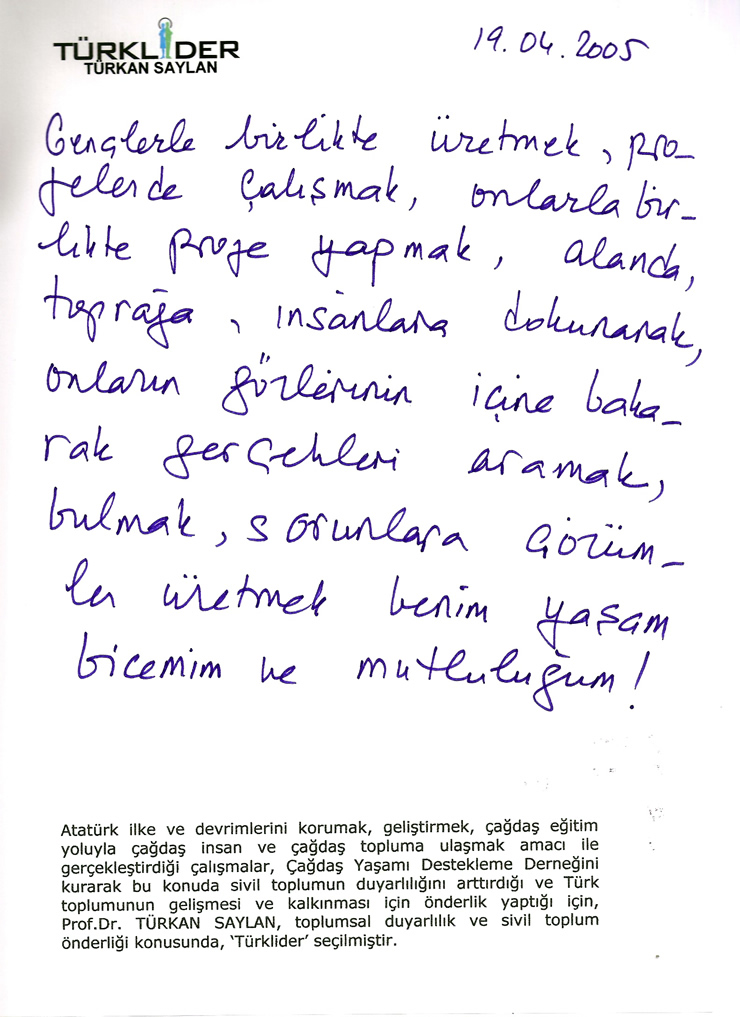 TÜRKLİDER
TÜRKAN SAYLAN
19.04.2005
Gençlerle birlikte üretmek, pro-
jelerde çalışmak, onlarla bir-
likte proje yapmak, alanda,
toprağa, insanlara dokunarak,
onların gözlerinin içine baka-
rak gerçekleri aramak,
bulmak, sorunlara çözüm-
ler üretmek benim yaşam
bicemim ve mutluluğum!
Atatürk ilke ve devrimlerini korumak, geliştirmek, çağdaş eğitim
yoluyla çağdaş insan ve çağdaş topluma ulaşmak amacı ile
gerçekleştirdiği çalışmalar, Çağdaş Yaşamı Destekleme Derneğini
kurarak bu konuda sivil toplumun duyarlılığını arttırdığı ve Türk
toplumunun gelişmesi ve kalkınması için önderlik yaptığı için,
Prof.Dr. TÜRKAN SAYLAN, toplumsal duyarlılık ve sivil toplum
önderliği konusunda, ‘Türklider’ seçilmiştir.